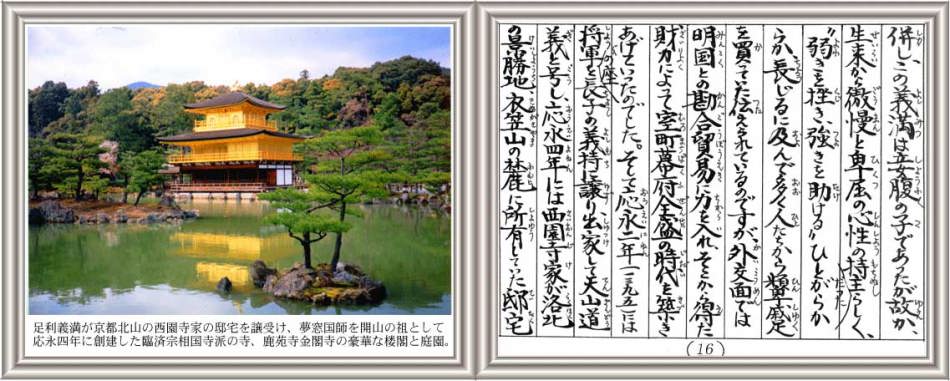 足利義満が京都北山の西園寺家の邸宅を譲受け、夢窓国師を開山の祖として
応永四年に創建した臨済宗相国寺派の寺、鹿苑寺金閣寺の豪華な楼閣と庭園。
併し、この義満は妾腹の子であったが故か、
生来から慢と卑屈の心性の持主らしく、
〝弱きを挫き、強きを助ける〟ひとがらか
らか、長じるに及んで多く人たちから顰蹙
を買ってた伝えれているのですが、外交面では
明国との勘合貿易に力を入れ、そこから得た
財力によって室町幕府全盛の時代を築き
あげていったのでした。そして応永二年(一三九五)には
将軍の座を長子の義持に譲り出家して天山道
義と号し、応永四年には西園寺家が洛北
の景勝地衣笠山の麓に所有していた邸宅
(16)